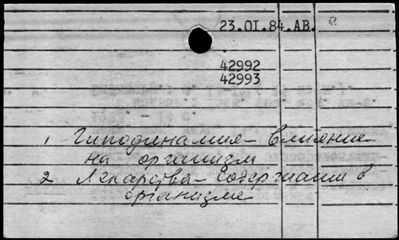 23.01.84.АВ.
42992
42993
1 Гиподинамия - влияние
на организм
2 Лекарства - содержание в
организме